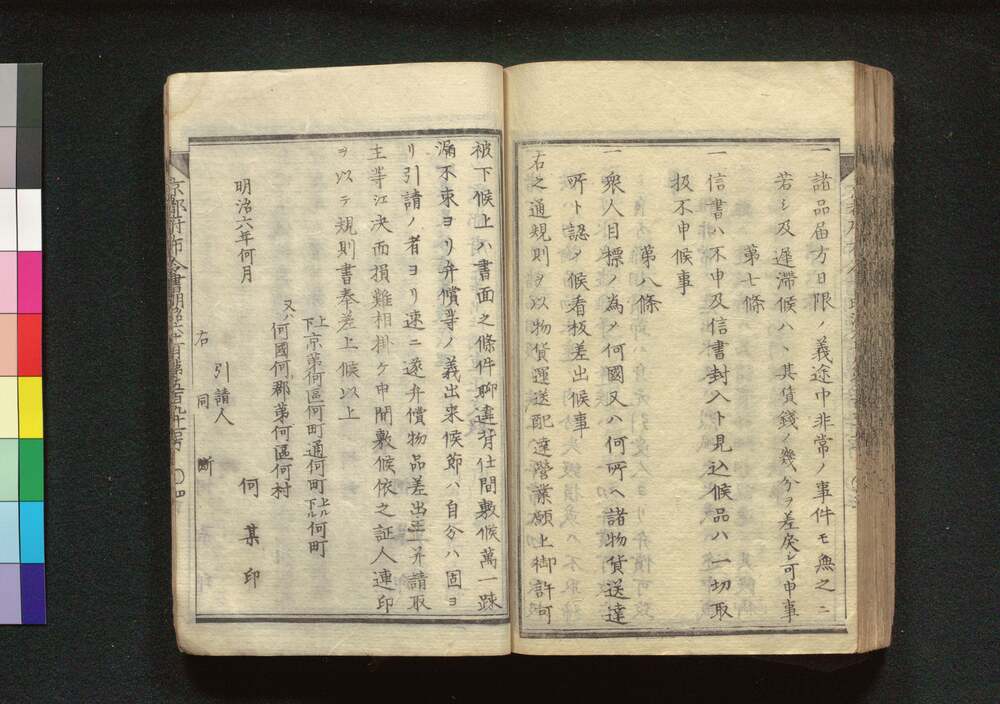 一諸品届方日限ノ義途中非常ノ事件モ無之ニ
若シ及遅滞候ハヽ其賃銭ノ幾分ヲ差戻シ可申事
第七條
一信書ハ不申及信書封入ト見込候品ハ一切取
扱不申候事
第八條
一衆人目標ノ為メ何國又ハ何所ヘ諸物貨送達
所ト認メ候看板差出候事
右之通規則ヲ以物貨運送配達営業願上御許可
被下候上ハ書面之條件聊違背仕間敷候萬一踈
漏不束ヨリ弁償等ノ義出来候節ハ自分ハ固ヨ
リ引請ノ者ヨリ速ニ遂弁償物品差出主并請取
主等江決而損難相掛ケ申間敷候依之証人連印
ヲ以テ規則書奉差上候以上
上下京第何區何町通何町上ル下ル何町
又ハ何國何郡第何區何村
明治六年何月
何某印
引請人
右同断
京都府布令書明治六年
四